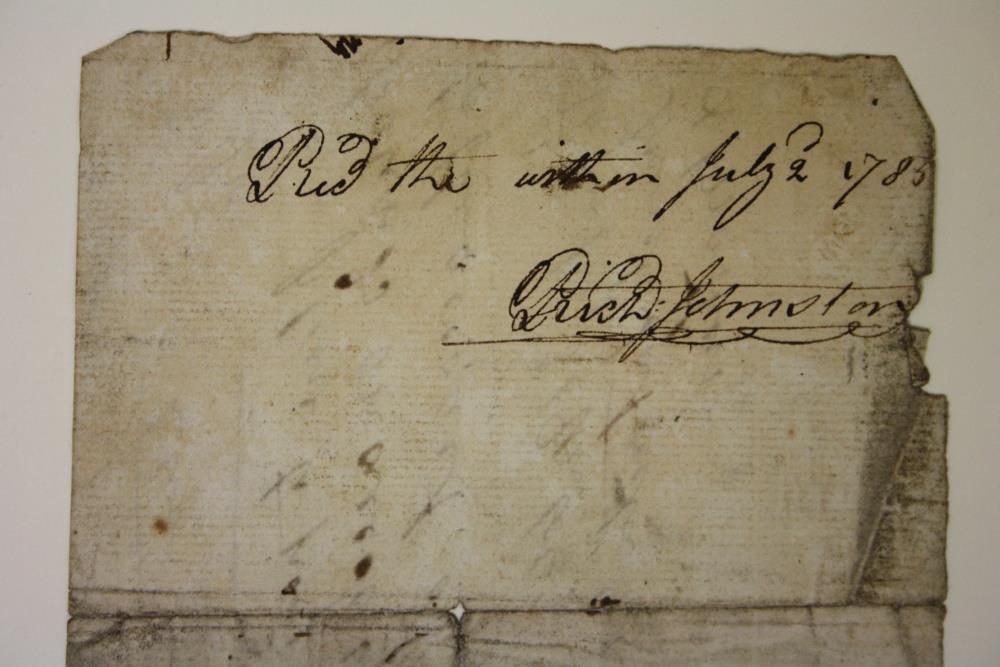 Recd the within July 2d 1785
Richd: Johnston